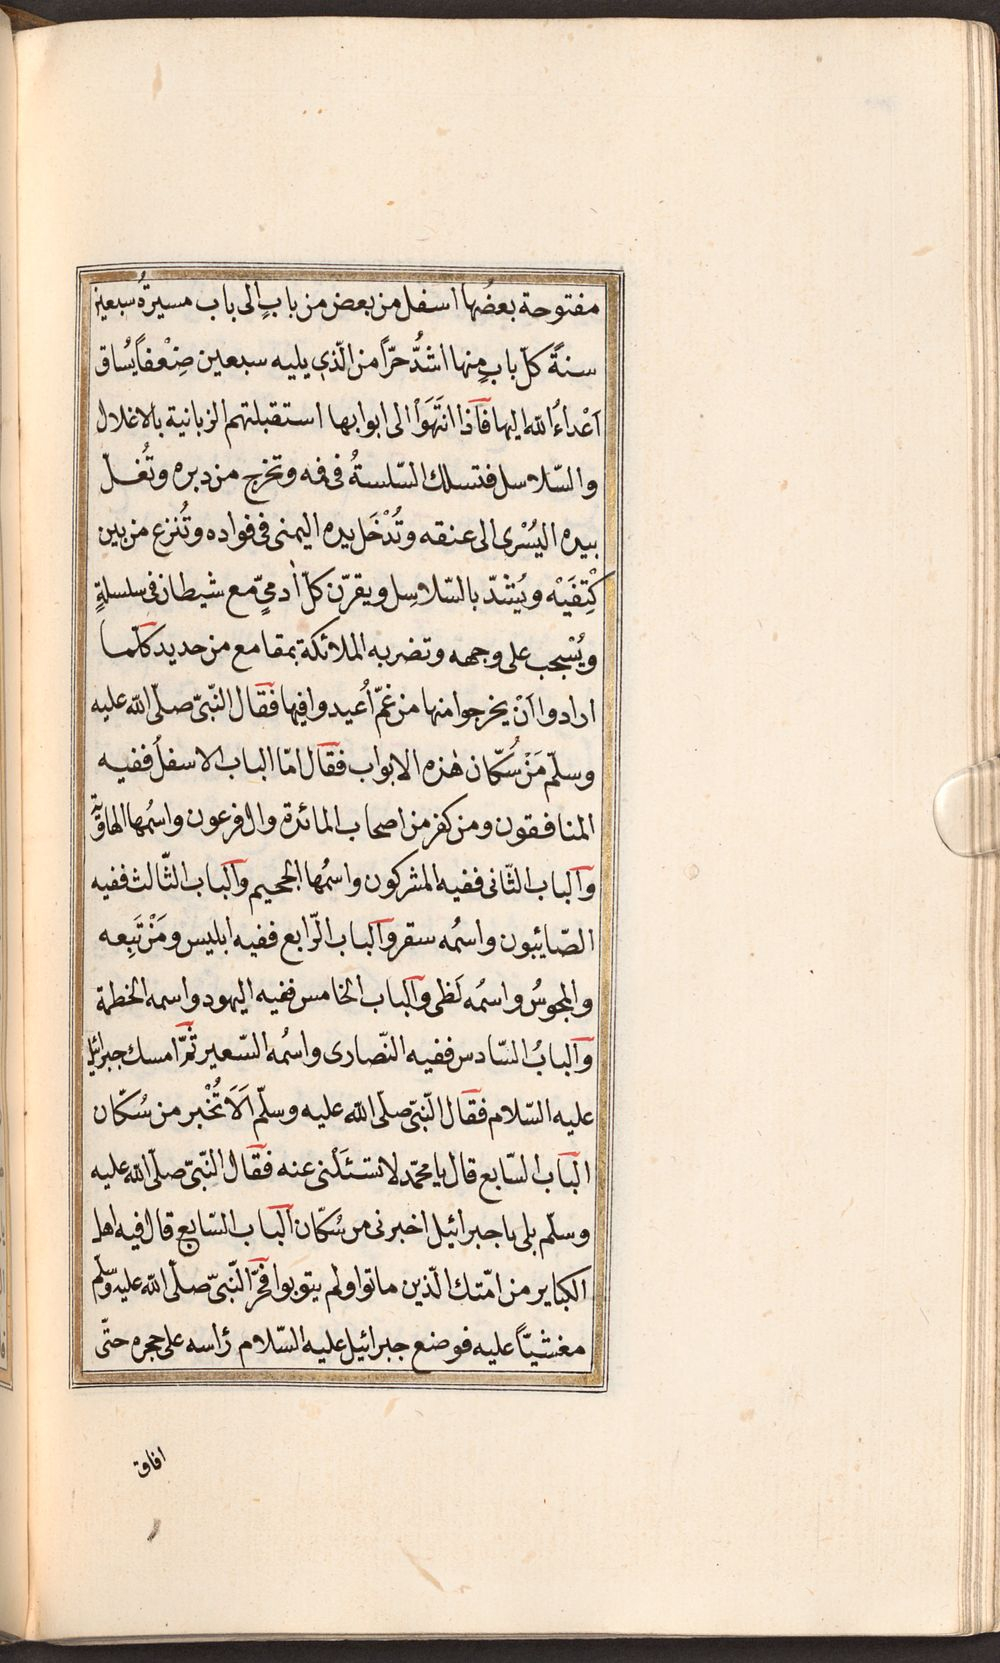 مفتوحة بعضُها اسفل من بعض من بابٍ الى باب مسيرةُ سبعين
سنةً كلّ بابٍ منها اشدُّ حرّاً من الّذى يليه سبعين ضِعْفاً يُساق
اَعْداءُ الله اليها فاذا انتَهَوْا الى ابوابها استقبلتهم الزبانية بالاغلال
والسّلاسل فتسلك السّلسةُ فى فه وتخرج من دبره وتُغلّ
بيده اليُسْرى الى عنقه وتُدْخَل يده اليمنى فى فواده وتُنزع من بين
كَتِفَيْه ويُشدّ بالسّلاسِل ويقرّن كلّ اٰدمىٍّ مع شيطان فى سلسلةٍ
ويُسْجب على وجهه وتضربه الملائكة بمقامع من حديد كلّما
ارادوا اَنْ يخرجوا منها من غمّ اُعيدوا فيها فقال النّبىّ صلّى الله عليه
وسلّم مَنْ سُكّان هٰذه الابواب فقال امّا الباب الاسفلُ ففيه
المنافقون ومن كفر من اصحاب المائدة وال فرعون واسُمها الهاوّية
والباب الثّانى ففيه المشركون واسُمها الجحيم والباب الثّالث ففيه
الصّايبون واسُمه سقر والباب الرّابع ففيه ابليس ومَنْ تَبِعه
والمجوسُ واسُمه لَظى والباب الخامس ففيه اليهود واسمه الحطمة
والبابُ السّادس ففيه النّصارى واسُمه السّعير ثمّ امسك جبرائيل
عليه السّلام فقال النّبىّ صلّى الله عليه وسلّم اَلَا تُخْبر من سُكّان
الباب السّابع قال يا محمّد لا تسئَلْنى عنه فقال النّبىّ صلّى الله عليه
وسلّم بلى يا جبرائيل اخبرنى من سُكّان الباب السّابع قال فيه اهل
الكباير من امّتك الّذين ماتوا ولم يتوبوا فخرّ النّبىّ صلّى الله عليه وسلّم
مغشيّاً عليه فوضع جبرائيل عليه السّلام رأسه على حجره حتّى
افاق